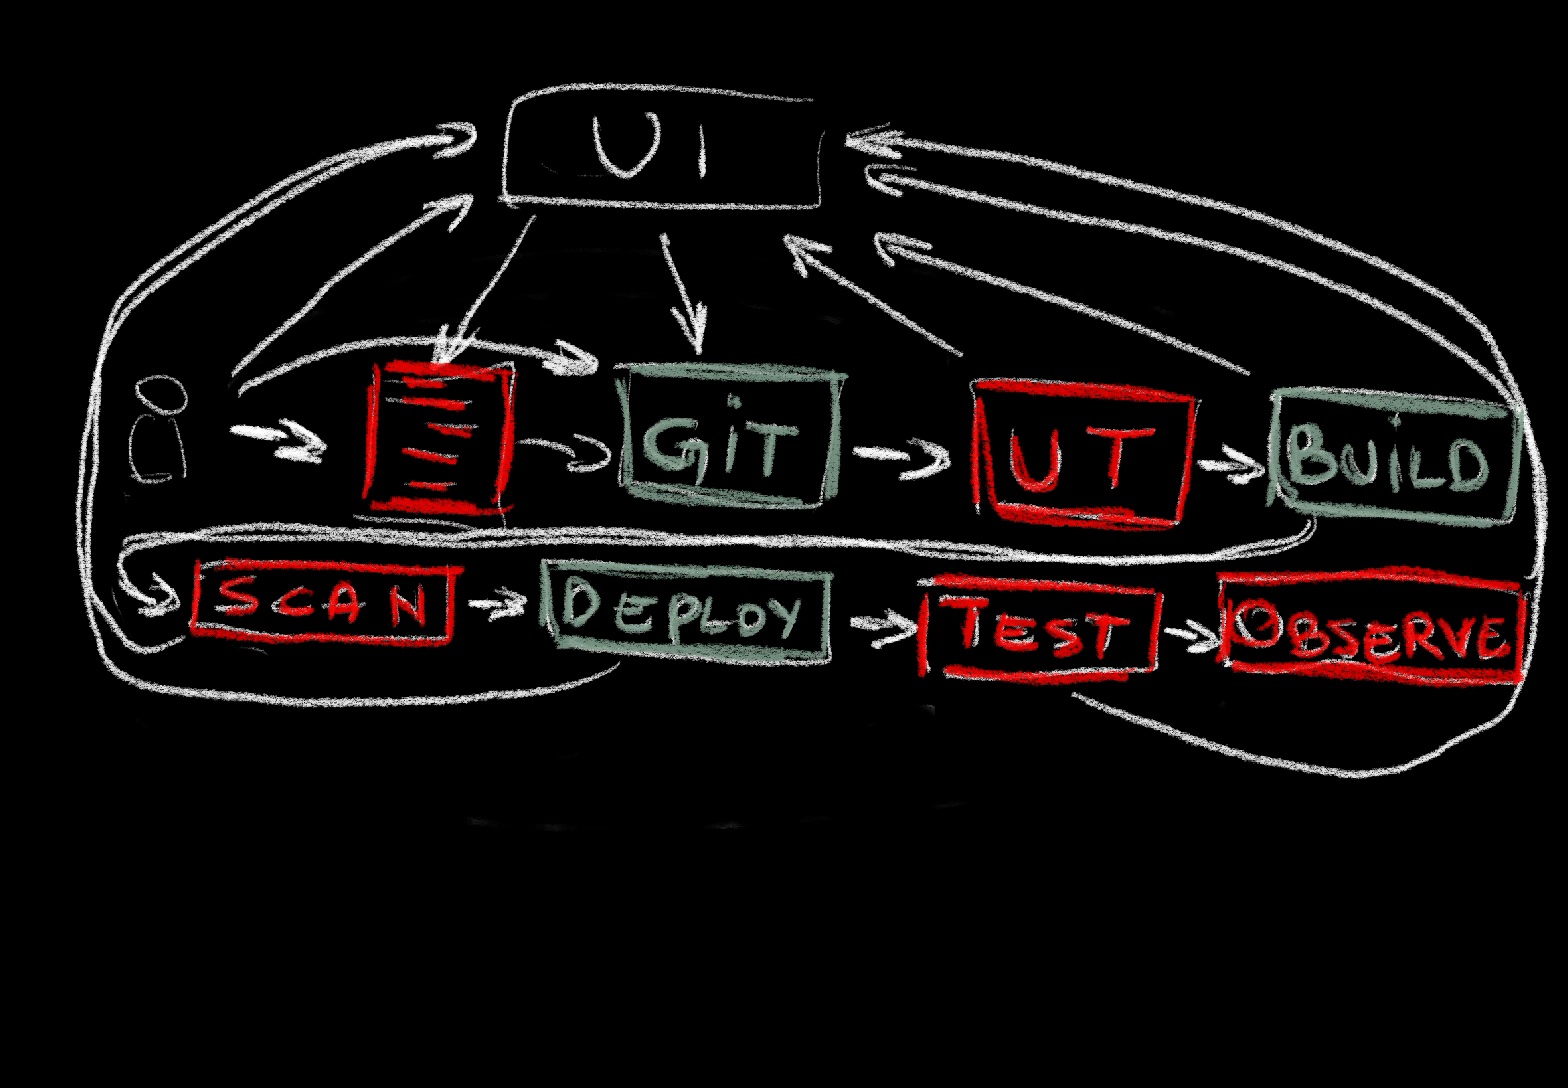 UI
GiT
UT
BUiLD
SCAN
DEPLOY
TEST
OBSERVE